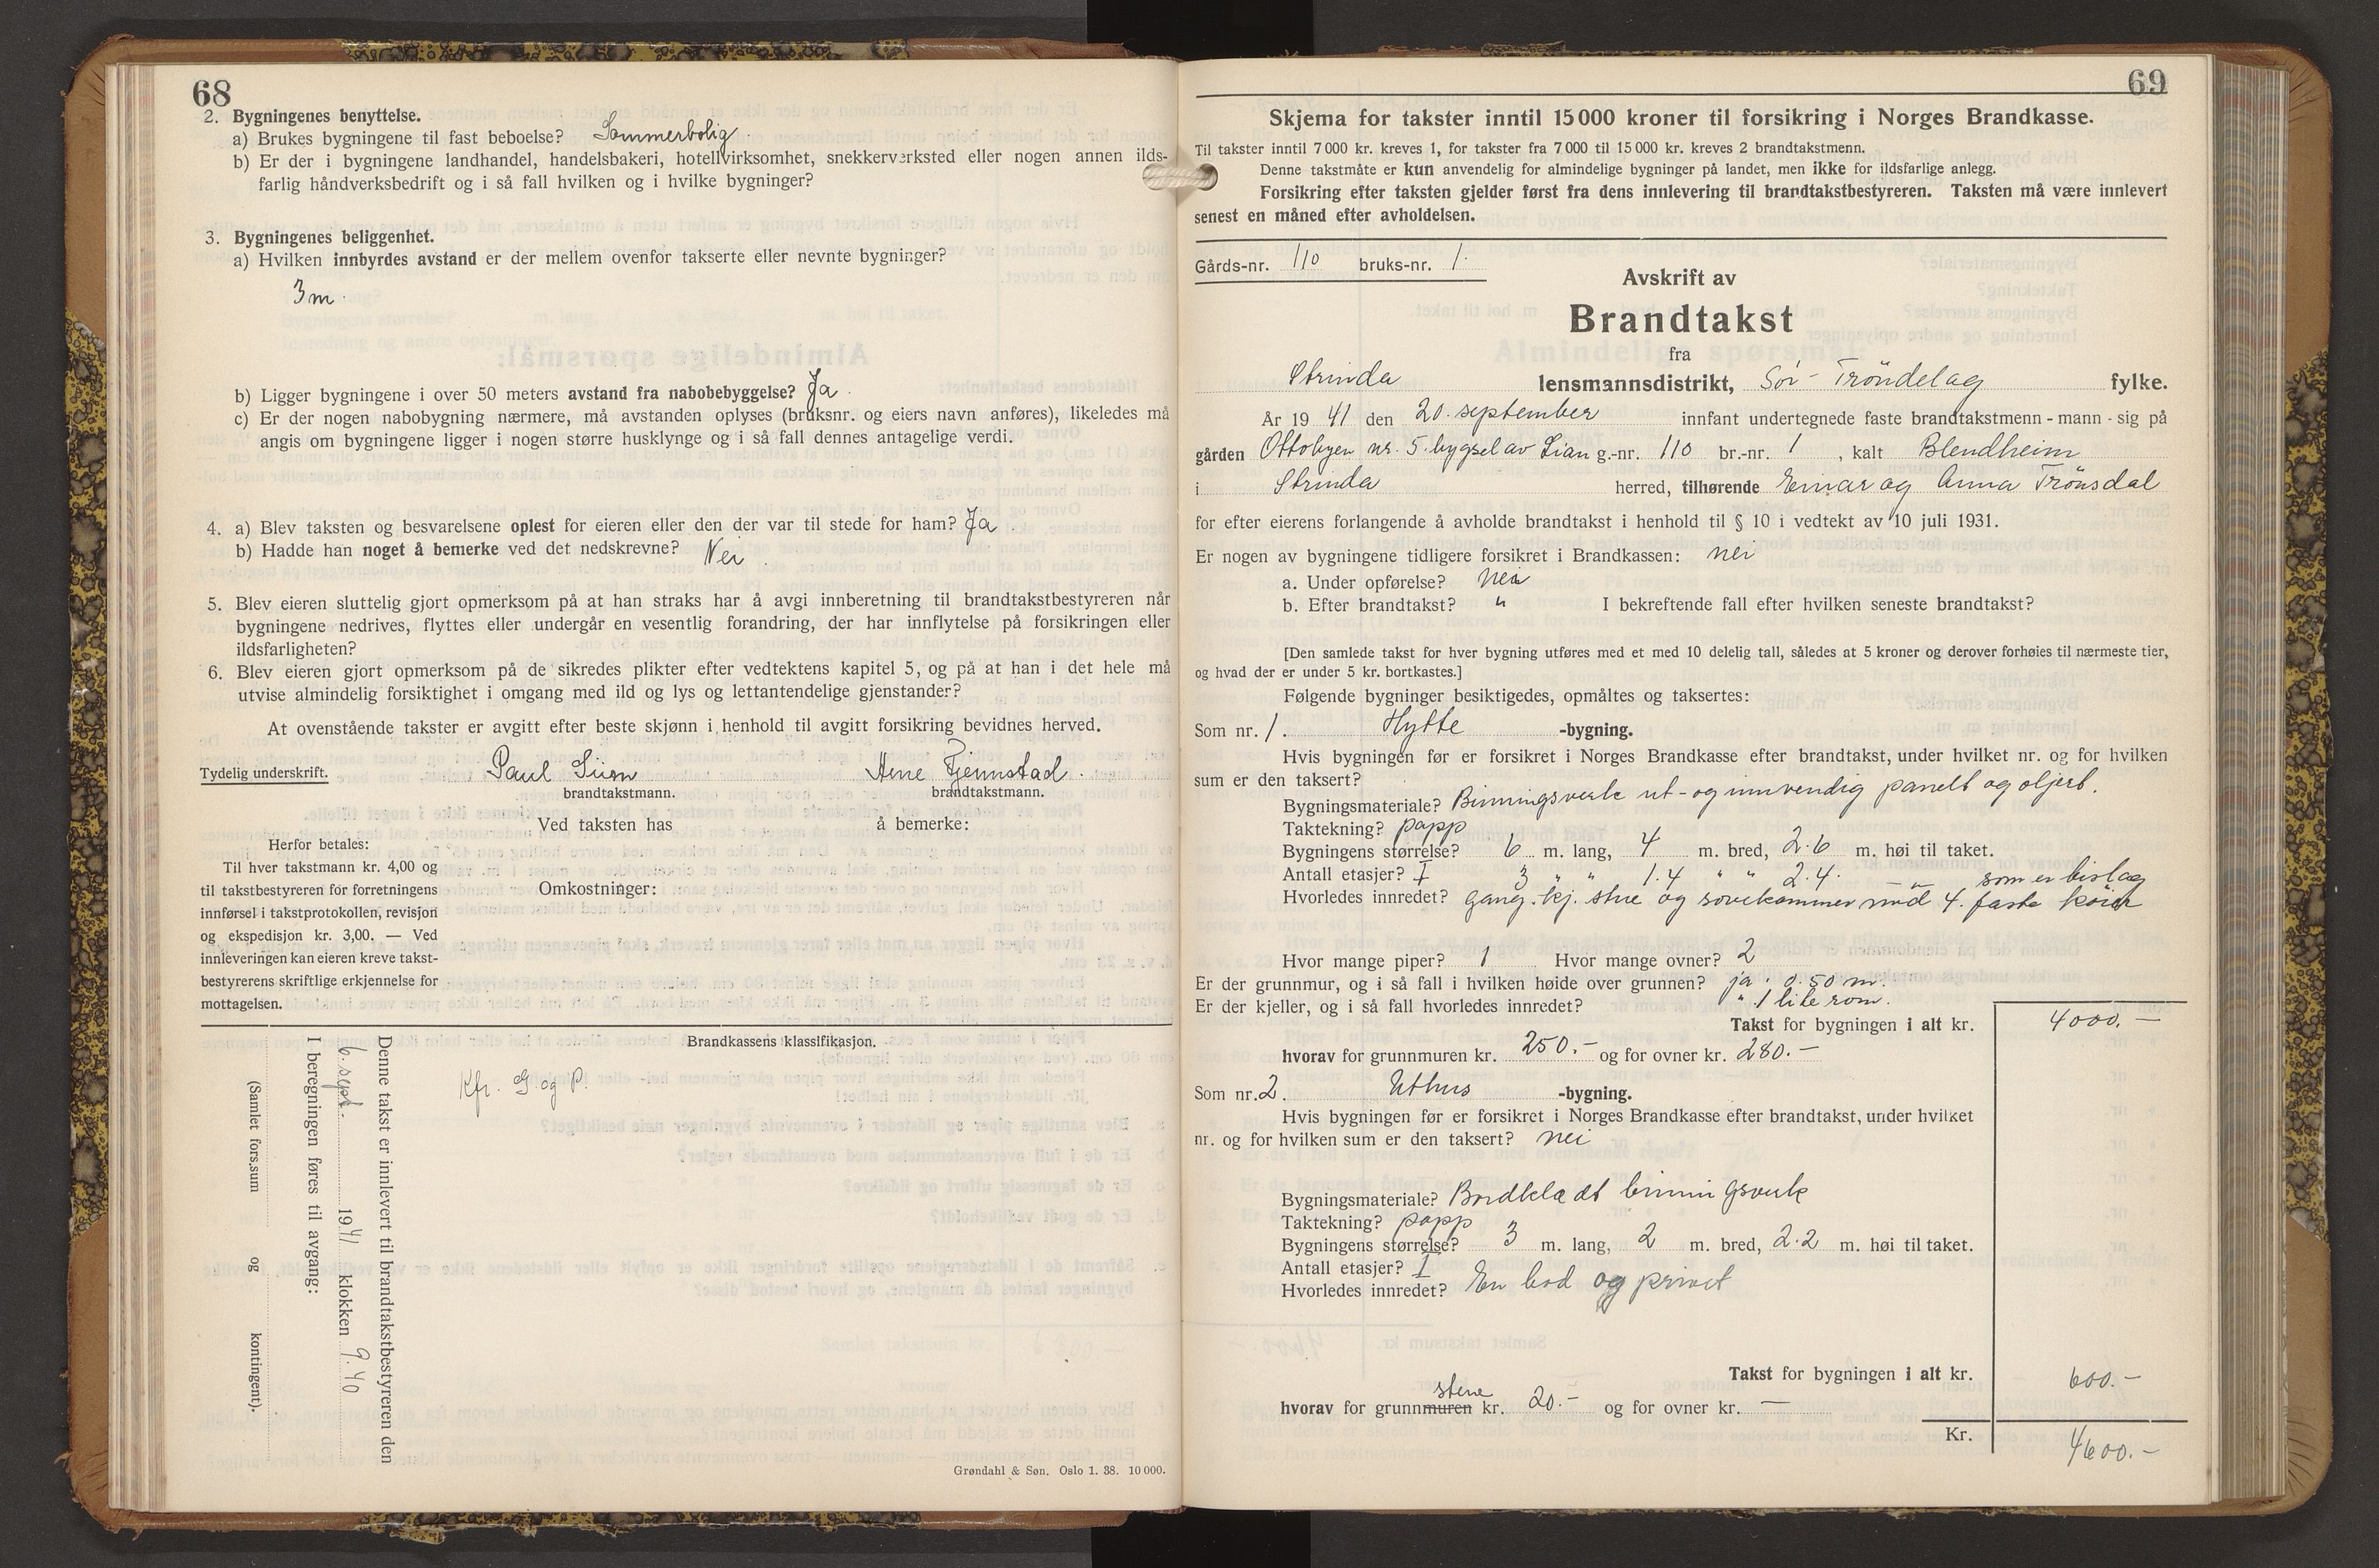 68
2. Bygningenes benyttelse.
a) Brukes bygningene til fast beboelse? Sommerbolig
b) Er der i bygningene landhandel, handelsbakeri, hotellvirksomhet, snekkerverksted eller nogen annen ilds-
farlig håndverksbedrift og i så fall hvilken og i hvilke bygninger?
3. Bygningenes beliggenhet.
a) Hvilken innbyrdes avstand er der mellem ovenfor takserte eller nevnte bygninger?
3 m.
b) Ligger bygningene i over 50 meters avstand fra nabobebyggelse? Ja.
c) Er der nogen nabobygning nærmere, må avstanden oplyses (bruksnr. og eiers navn anføres), likeledes må
angis om bygningene ligger i nogen større husklynge og i så fall dennes antagelige verdi.
4. a) Blev taksten og besvarelsene oplest for eieren eller den der var til stede for ham? Ja.
b) Hadde han noget å bemerke ved det nedskrevne? Nei
5. Blev eieren sluttelig gjort opmerksom på at han straks har å avgi innberetning til brandtakstbestyreren når
bygningene nedrives, flyttes eller undergår en vesentlig forandring, der har innflytelse på forsikringen eller
ildsfarligheten?
6. Blev eieren gjort opmerksom på de sikredes plikter efter vedtektens kapitel 5, og på at han i det hele må
utvise almindelig forsiktighet i omgang med ild og lys og lettantendelige gjenstander?
At ovenstående takster er avgitt efter beste skjønn i henhold til avgitt forsikring bevidnes herved.
Tydelig underskrift. Paul Arne Fjermstad.
brandtakstmann. brandtakstmann.
Ved taksten has å bemerke:
Herfor betales:
Til hver takstmann kr. 4,00 og
til takstbestyreren for forretningens
innførsel i takstprotokollen, revisjon
og ekspedisjon kr. 3,00. — Ved
innleveringen kan eieren kreve takst-
bestyrerens skriftlige erkjennelse for
mottagelsen.
Omkostninger:
Brandkassens klassifikasjon.
Kfr. G. og P.
Denne takst er innlevert til brandtakstbestyreren den
6. sept. 1941 klokken 9.40
I beregningen føres til avgang:
(Samlet fors.sum og kontingent).
Grøndahl & Søn. Oslo 1. 38. 10 000.
69
Skjema for takster inntil 15 000 kroner til forsikring i Norges Brandkasse.
Til takster inntil 7 000 kr. kreves 1, for takster fra 7 000 til 15 000 kr. kreves 2 brandtakstmenn.
Denne takstmåte er kun anvendelig for almindelige bygninger på landet, men ikke for ildsfarlige anlegg.
Forsikring efter taksten gjelder først fra dens innlevering til brandtakstbestyreren. Taksten må være innlevert
senest en måned efter avholdelsen.
Gårds-nr. 110 bruks-nr. 1.
Avskrift av
Brandtakst
fra
Strinda lensmannsdistrikt, Sør-Trøndelag fylke.
År 1941 den 20. september innfant undertegnede faste brandtakstmenn - mann - sig på
gården Ottobyen nr. 5. bygsel av Lian g.-nr. 110 br.-nr. 1, kalt Blendheim
i Strinda herred, tilhørende Einar og Anna Trønsdal
for efter eierens forlangende å avholde brandtakst i henhold til § 10 i vedtekt av 10 juli 1931.
Er nogen av bygningene tidligere forsikret i Brandkassen: nei
a. Under opførelse? nei
b. Efter brandtakst? " I bekreftende fall efter hvilken seneste brandtakst?
[Den samlede takst for hver bygning utføres med et med 10 delelig tall, således at 5 kroner og derover forhøies til nærmeste tier,
og hvad der er under 5 kr. bortkastes.]
Følgende bygninger besiktigedes, opmåltes og taksertes:
Som nr. 1. Hytte -bygning.
Hvis bygningen før er forsikret i Norges Brandkasse efter brandtakst, under hvilket nr. og for hvilken
sum er den taksert?
Bygningsmateriale? Binningsverk ut- og innvendig panelt og oljert.
Taktekning? papp
Bygningens størrelse? 6 m. lang, 4 m. bred, 2.6 m. høi til taket.
Antall etasjer? I 3 " " 1.4 " " 2.4. — " — som er bislag
Hvorledes innredet? gang. kj. stue og sovekammer med 4. faste køier
Hvor mange piper? 1 Hvor mange ovner? 2
Er der grunnmur, og i så fall i hvilken høide over grunnen? ja. 0.50 m.
Er der kjeller, og i så fall hvorledes innredet? " 1 lite rom.
Takst for bygningen i alt kr. 4000.—
hvorav for grunnmuren kr. 250.— og for ovner kr. 280.—
Som nr. 2. Uthus -bygning.
Hvis bygningen før er forsikret i Norges Brandkasse efter brandtakst, under hvilket
nr. og for hvilken sum er den taksert? nei
Bygningsmateriale? Bordklædt binningsverk
Taktekning? papp
Bygningens størrelse? 3 m. lang, 2 m. bred, 2.2 m. høi til taket.
Antall etasjer? I
Hvorledes innredet? En bod og privet
Takst for bygningen i alt kr. 600.—
stene
hvorav for grunnmuren kr. 20.— og for ovner kr. —
Kr. 4600.—